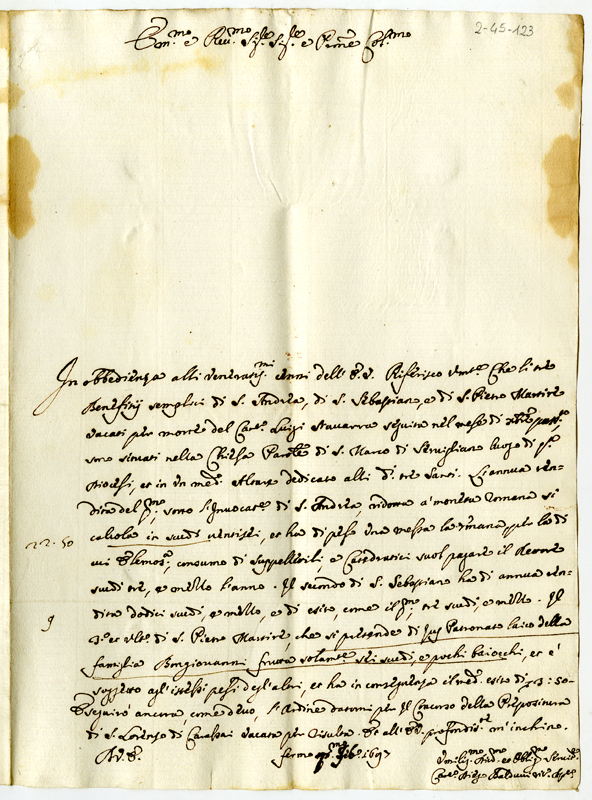 2-45-123
Em.mo e Rev.mo Sig.re Sig.re e P.rone Col.mo
In obbedienza alli veneratis.mi cenni dell' E. V. Riferisco Che li tre
Benefitij semplici di S. Andrea, di S. Sebastiano, e di S. Pietro Martire
vacati per morte del Luigi seguita nel mese di
sono situati nella Chiesa Par.le di S. Marco di Servigliano luogo di q.ta
Diocesi, et in un med.o Altare dedicato alli d.i tre Santi. L'annua ren-
dita del p.mo, sotto l'Invocat.e di S. Andrea, ridotta a' moneta romana si
calcola in scudi ventisei, et ha di peso una messa la 7mana, per la di
22.50
cui elemos.a, consumo di suppellettili, e Catedratici suol pagare il Rettore
scudi tre, e mezzo l'anno. Il secondo di S. Sebastiano ha di annua ren-
dita dodici scudi, e mezzo, e di esito, come il p.mo, tre scudi, e mezzo. Il
9
3.o et ult.o di S. Pietro Martire, che si pretende di Jus Patronato laico della
famiglia Bongiovanni frutta solam.te sei scudi, e pochi baiocchi, et è
soggetto agl'istessi pesi degl'altri, et ha in conseguenza il med.o esito di 3:50-
Eseguirò ancora, come devo, l'Ordine datomi per il Concorso della Prepositura
di S. Lorenzo di vacata per E all' E. V. profondis.te m'inchino.
D. V. E.
fermo p.mo 1697
Umilis.mo Div.mo et Obblig.mo Servit.e
Balduini